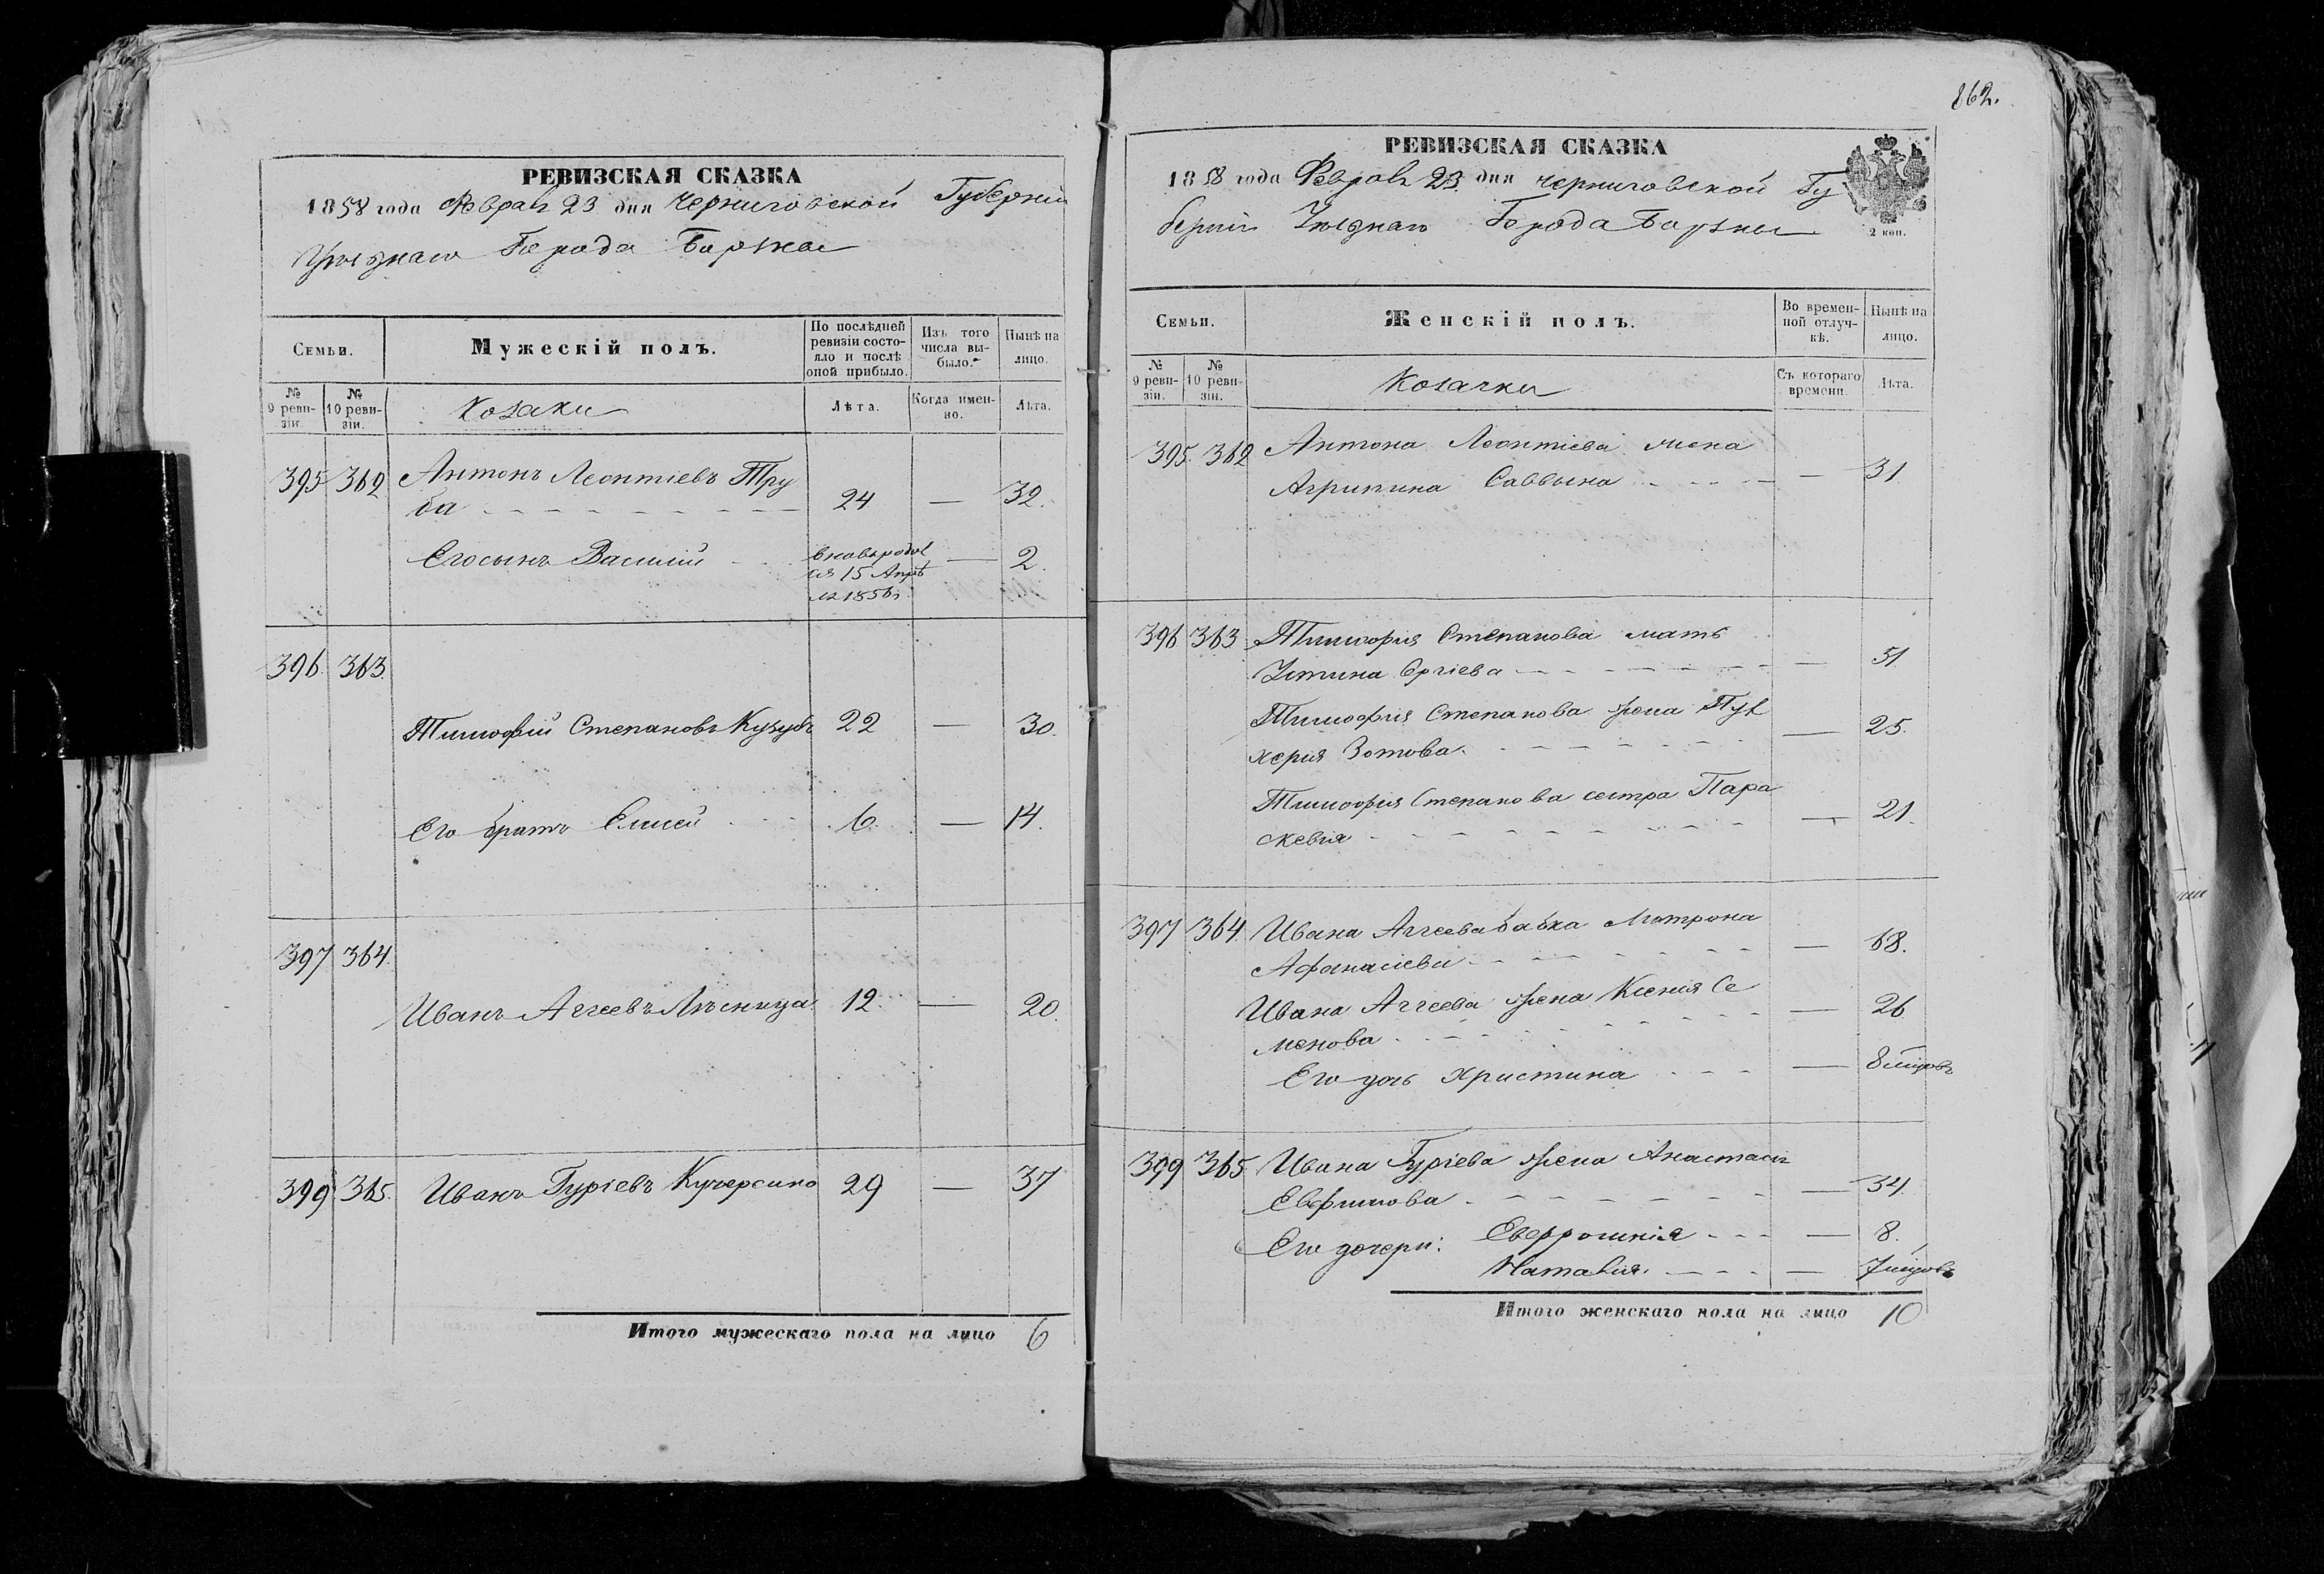 РЕВИЗСКАЯ СКАЗКА
1858 года Феврал 23 дня Черниговской Губерніи
Уѣзднаго Города Борзны
Семьи.
Мужескій полъ.
По послѣдней
ревизіи состо-
яло и послѣ
оной прибыло.
Изъ того
числа вы-
было.
Нынѣ на
лицо.
№
9 реви-
зіи.
№
10 реви-
зіи.
Козаки
Лѣта.
Когда имен-
но.
Лѣта.
395 362 Антонъ Леонтіевъ Тру
ба 24 — 32.
Его сынъ Василій вновь родил — 2.
ся 15 Апрѣ
ля 1856 г.
396. 363.
Тимофій Степановъ Кузубъ 22 — 30.
Его братъ Елисей 6 — 14.
397 364.
Иванъ Аггеевъ Лѣсница 12. — 20.
399 365. Иванъ Гуріевъ Кучерсино 29 — 37
Итого мужескаго пола на лицо 6
862.
РЕВИЗСКАЯ СКАЗКА
1858 года Феврал 23 дня Черниговской Гу
берніи Уѣзднаго Города Борзны
2 коп.
Семьи.
Женскій полъ.
Во времен-
ной отлуч-
кѣ.
Нынѣ на
лицо.
№
9 реви-
зіи.
№
10 реви-
зіи.
Козачки
Съ котораго
времени.
Лѣта.
395. 362 Антона Леонтіева жена
Агрипина Саввына — 31
396 363 Тимофія Степанова мать
Устина Ергіева — 51
Тимофія Степанова жена Пул
херия Зотова. — 25.
Тимофія Степанова сестра Пара
скевія — 21.
397 364. Ивана Аггеева бабка Мотрона
Афанасіева — 68.
Ивана Аггеева жена Ксенія Се
менова — 26
Его дочь Христина — 8 мѣцовъ
399 365 Ивана Гуріева жена Анастасія
Евфимова — 34.
Его дочери: Евфросинія — 8.
Наталія. — 7 мѣцовъ
Итого женскаго пола на лицо 10